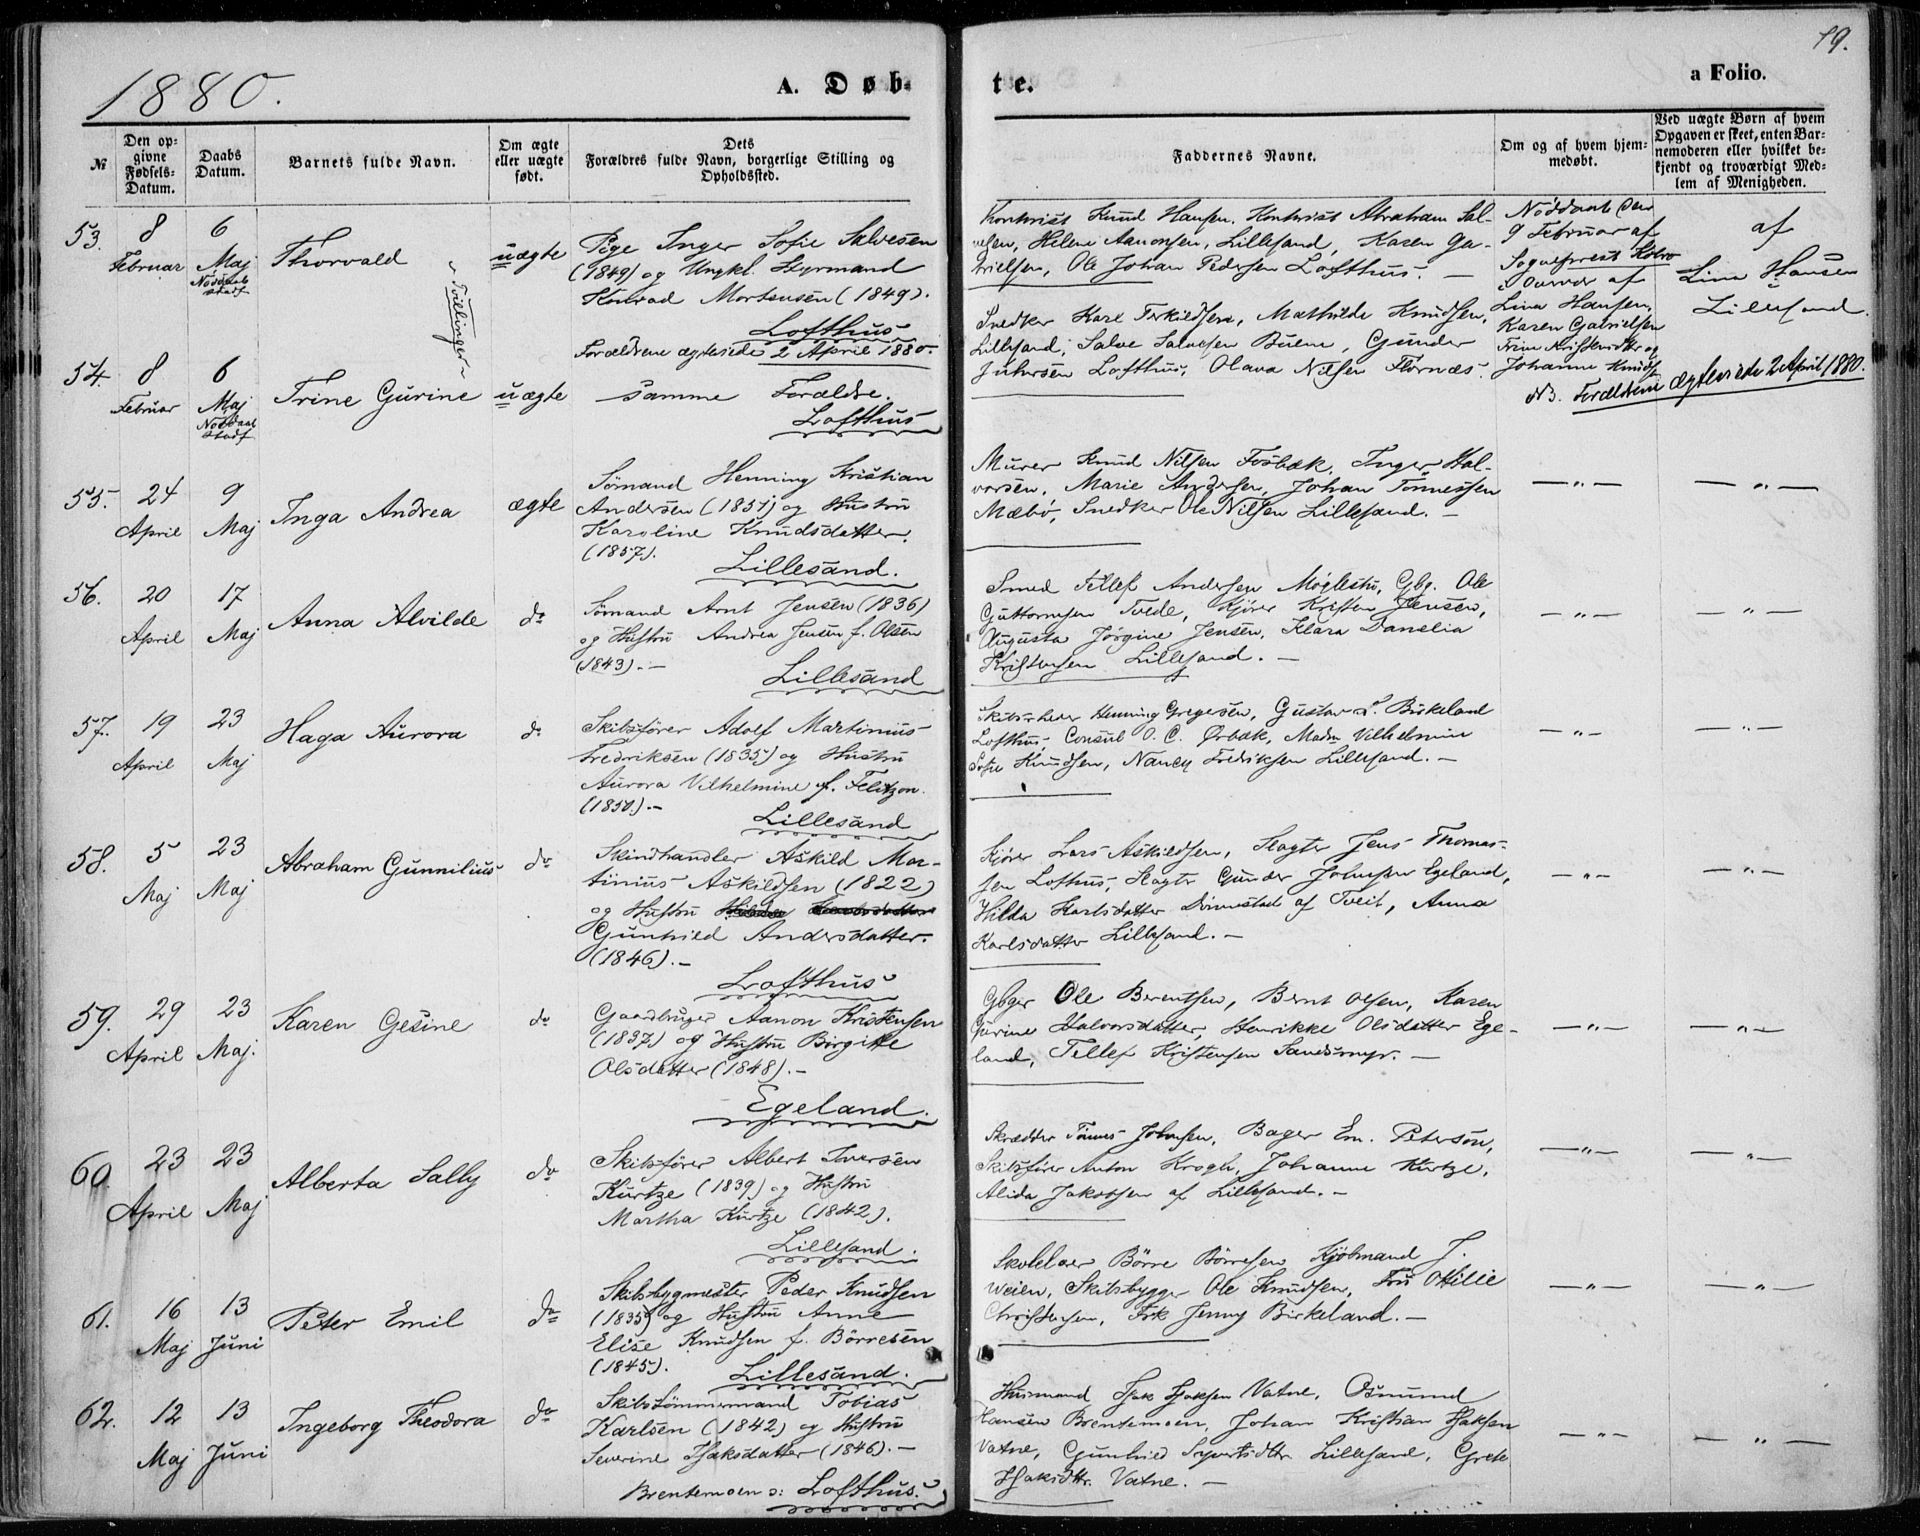 1880.
A. Døb-
te.
19.
a Folio.
№
Den op-
givne
Fødsels-
Datum.
Daabs
Datum.
Barnets fulde Navn.
Om ægte
eller uægte
født.
Dets
Forældres fulde Navn, borgerlige Stilling og
Opholdssted.
Faddernes Navne.
Om og af hvem hjem-
medøbt.
Ved uægte Børn af hvem
Opgaven er skeet, enten Bar-
nemoderen eller hvilket be-
kjendt og troværdigt Med-
lem af Menigheden.
53.
8
Februar
6
Maj
Nöddaab
stadf
Thorvald
" Tvilinger "
uægte
Pige Inger Sofie Salvesen
(1849) og Ungkl. Styrmand
Konrad Mortensen (1849).
Lofthus
Forældrene ægteviede 2 April 1880.
Kontorist Knud Hansen, Kontorist Abraham Sal-
vesen, Helene Aanonsen, Lillesand, Karen Ga-
brielsen, Ole Johan Pedersen Lofthus. —
Nöddaabt den
9 Februar af
Sogneprest
Overvær af
Lina Hansen,
Karen Gabrielsen
Trine Kristensdtter og
Johanne Knudsen
af
Lina Hansen
Lillesand.
54.
8
Februar
6
Maj
Nöddaab
stadf
Trine Gurine
uægte
samme Forældre.
Lofthus
Snedker Karl Terkildsen, Mathilde Knudsen,
Lillesand, Salve Salvesen Buene, Gunder
Juhlsen Lofthus, Olava Nilsen Flörnæs.
NB. Forældrene ægteviede 2 April 1880.
55.
24
April
9
Maj
Inga Andrea
ægte
Sömand Henning Kristian
Andersen (1851) og Hustru
Karoline Knudsdatter.
(1857).
Lillesand.
Murer Knud Nilsen Fosbæk, Inger Hal-
vorsen, Marie Andersen, Johan Tönnessen
Mæbö, Snedker Ole Nilsen Lillesand. —
— " —
— " —
56.
20
April
17
Maj
Anna Alvilde
do
Sömand Arnt Jensen (1836)
og Hustru Andrea Jensen f. Olsen
(1843). —
Lillesand
Smed Tellef Andersen Möglestu, Gbg. Ole
Guttormsen Tvede, Kjörer Kristen Jensen,
Augusta Jörgine Jensen, Klara Danelia
Kristensen Lillesand. —
— " —
— " —
57.
19
April
23
Maj
Haga Aurora
do
Skibsförer Adolf Martinius
Fredriksen (1835) og Hustru
Aurora Vilhelmine f. Felitzon.
(1850). —
Lillesand
Skibsrheder Henning Gregersen, Gustav S. Birkeland
Lofthus, Consul O. C. Ørbæk, Madm Vilhelmine
Sofie Knudsen, Nancy Fredriksen Lillesand. —
— " —
— " —
58.
5
Maj
23
Maj
Abraham Gunnilius
do
Skindhandler Askild Mar-
tinius Askildsen (1822)
og Hustru
Gunhild Andersdatter.
(1846). —
Lofthus
Kjörer Lars Askildsen, Slagter Jens Thomas-
sen Lofthus, Slagter Gunder Johnsen Egeland,
Hilda Karlsdatter Dönnestad af Tveit, Anna
Karlsdatter Lillesand. —
— " —
— " —
59.
29
April
23
Maj.
Karen Gesine
do
Gaardbruger Aanon Kristensen
(1837) og Hustru Birgitte
Olsdatter (1848). —
Egeland.
Gbger Ole Berentsen, Bernt Olsen, Karen
Gurine Halvorsdatter, Henrikke Olsdatter Ege-
land, Tellef Kristensen Sandsmyr. —
— " —
— " —
60.
23
April
23
Maj
Alberta Sally
do
Skibsförer Albert Iversen
Kurtze (1839) og Hustru
Martha Kurtze (1842).
Lillesand.
Skrædder Tönnes Johnsen, Bager Em. Petersön,
Skibsförer Anton Krogh, Johanne Kurtze,
Alida Jakobsen af Lillesand. —
— " —
— " —
61.
16
Maj
13
Juni
Peter Emil
do
Skibsbygmester Peder Knudsen
(1835) og Hustru Anne
Elise Knudsen f. Börresen
(1845).
Lillesand.
Skolelærer Börre Börresen Kjöbmand J.
Weien, Skibsbygger Ole Knudsen, Fru Ottilie
Christensen, Frk Jenny Birkeland. —
— " —
— " —
62.
12
Maj
13
Juni
Ingeborg Theodora
do
Skibstömmermand Tobias
Karlsen (1842) og Hustru
Severine Isaksdatter (1846). —
Brentemoen s: Lofthus.
Husmand Isak Isaksen Vatne, Osmund
Hansen Brentemoen, Johan Kristian Isaksen
Vatne, Gunhild Syvertsdtr. Lillesand, Grete
Isaksdtr. Vatne. —
— " —
— " —